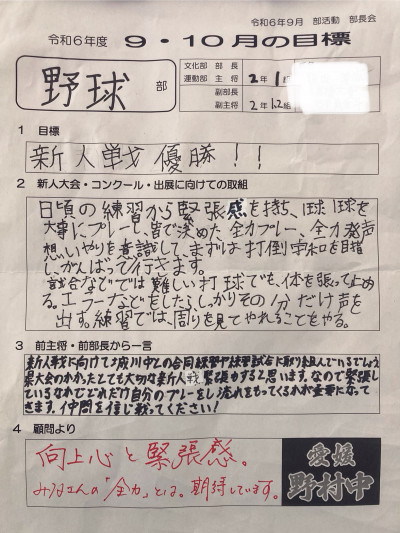 令和6年9月 部活動 部長会
令和6年度 9・10月の目標
野球 部
文化部 部長
運動部 主将 2年1
副部長
副主将 2年1,2組
1 目標
新人戦優勝!!
2 新人大会・コンクール・出展に向けての取組
日頃の練習から緊張感を持ち、1球1球を
大事にプレーし、皆で決めた全力プレー、全力発声
想いやりを意識して、まずは打倒宇和を目指
し、がんばって行きます。
試合などでは難しい打球でも、体を張って止め
る。エラーなどをしたらしっかりその分だけ声を
出す。練習では、周りを見てやれることをやる。
3 前主将・前部長から一言
新人戦に向けて城川中との合同練習や練習試合に取り組んでいるでしょう
県大会のかかったとても大切な新人戦、緊張もすると思います。なので緊張し
ているなかでどれだけ自分のプレーをし流れをもってくるかが重要になって
きます。仲間を信じ戦ってください!
4 顧問より
向上心と緊張感。
みなさんの「全力」とは。期待しています。
愛媛
野村中